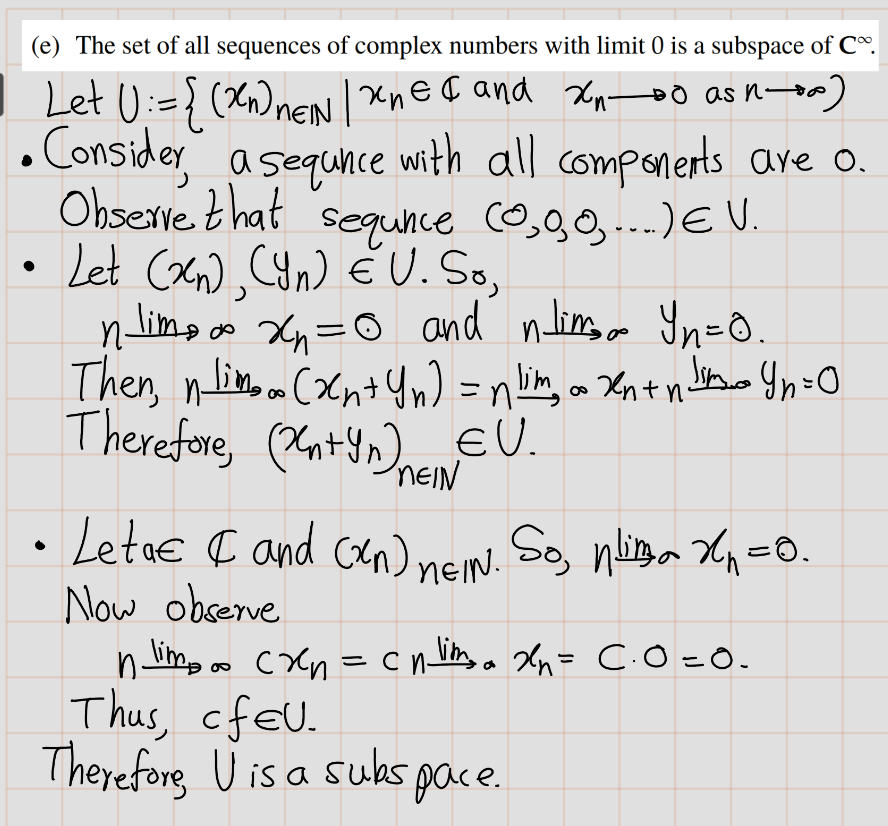 (e) The set of all sequences of complex numbers with limit 0 is a subspace of C^∞.
Let U := { (xn)n∈ℕ | xn ∈ ℂ and xn → 0 as n → ∞ )
• Consider, a sequnce with all components are 0.
Observe that sequnce (0,0,0,....) ∈ U.
• Let (xn), (yn) ∈ U. So,
lim n→∞ xn = 0 and lim n→∞ yn = 0.
Then, lim n→∞ (xn + yn) = lim n→∞ xn + lim n→∞ yn = 0
Therefore, (xn + yn)n∈ℕ ∈ U.
• Let a ∈ ℂ and (xn)n∈ℕ. So, lim n→∞ xn = 0.
Now observe
lim n→∞ cxn = c lim n→∞ xn = C.0 = 0.
Thus, cf ∈ U.
Therefore, U is a subspace.